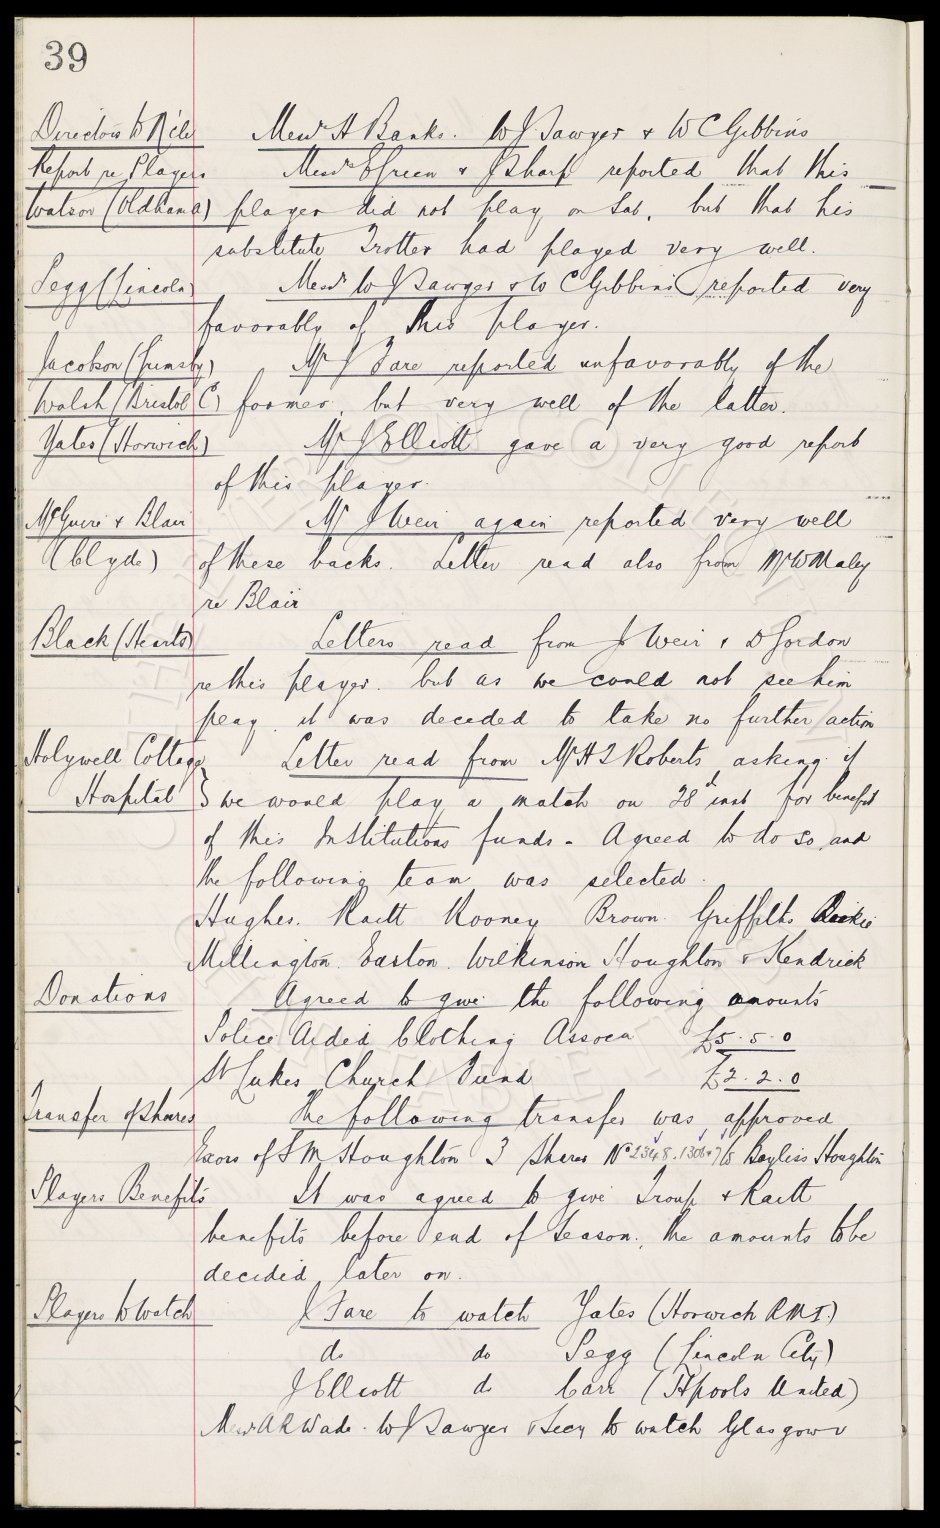 39
Directors to Ride Messrs H Banks. W J Sawyer & W C Gibbins
Report re Players Messrs E Green & J Sharp reported that this
Watson (Oldham A) player did not play on Sat, but that his
substitute Trotter had played very well.
Pegg (Lincoln) Messrs W J Sawyer & W C Gibbins reported very
favorably of this player.
Jacobson (Grimsby) Mr J Fare reported unfavorably of the
Walsh (Bristol C) former, but very well of the latter.
Yates (Horwich) Mr J Elliott gave a very good report
of this player.
McGuire & Blair Mr J Weir again reported very well
(Clyde) of these backs. Letter read also from Mr W Maley
re Blair
Black (Hearts) Letters read from J Weir & D Gordon
re this player. but as we could not see him
play it was decided to take no further action
Holywell Cottage Letter read from Mr H L Roberts asking if
Hospital } we would play a match on 28th inst for benefit
of this Institutions funds - Agreed to do so, and
the following team was selected.
Hughes. Raitt Rooney Brown. Griffiths Reikie
Millington. Easton. Wilkinson Houghton & Kendrick
Donations Agreed to give the following amounts
Police Aided Clothing Assocn £5.5.0
St Lukes Church Fund £2.2.0
Transfer of Shares The following transfer was approved
Exors of S M Houghton 3 Shares No 2348. 1306+7 to Bayliss Houghton
Players Benefits It was agreed to give Troup & Raitt
benefits before end of season., the amounts to be
decided later on.
Players to watch J Fare to watch Yates (Horwich R M I.)
do do Pegg (Lincoln City)
J Elliott do Carr (H'pools United)
Messrs A R Wade. W J Sawyer & Secy to watch Glasgow v